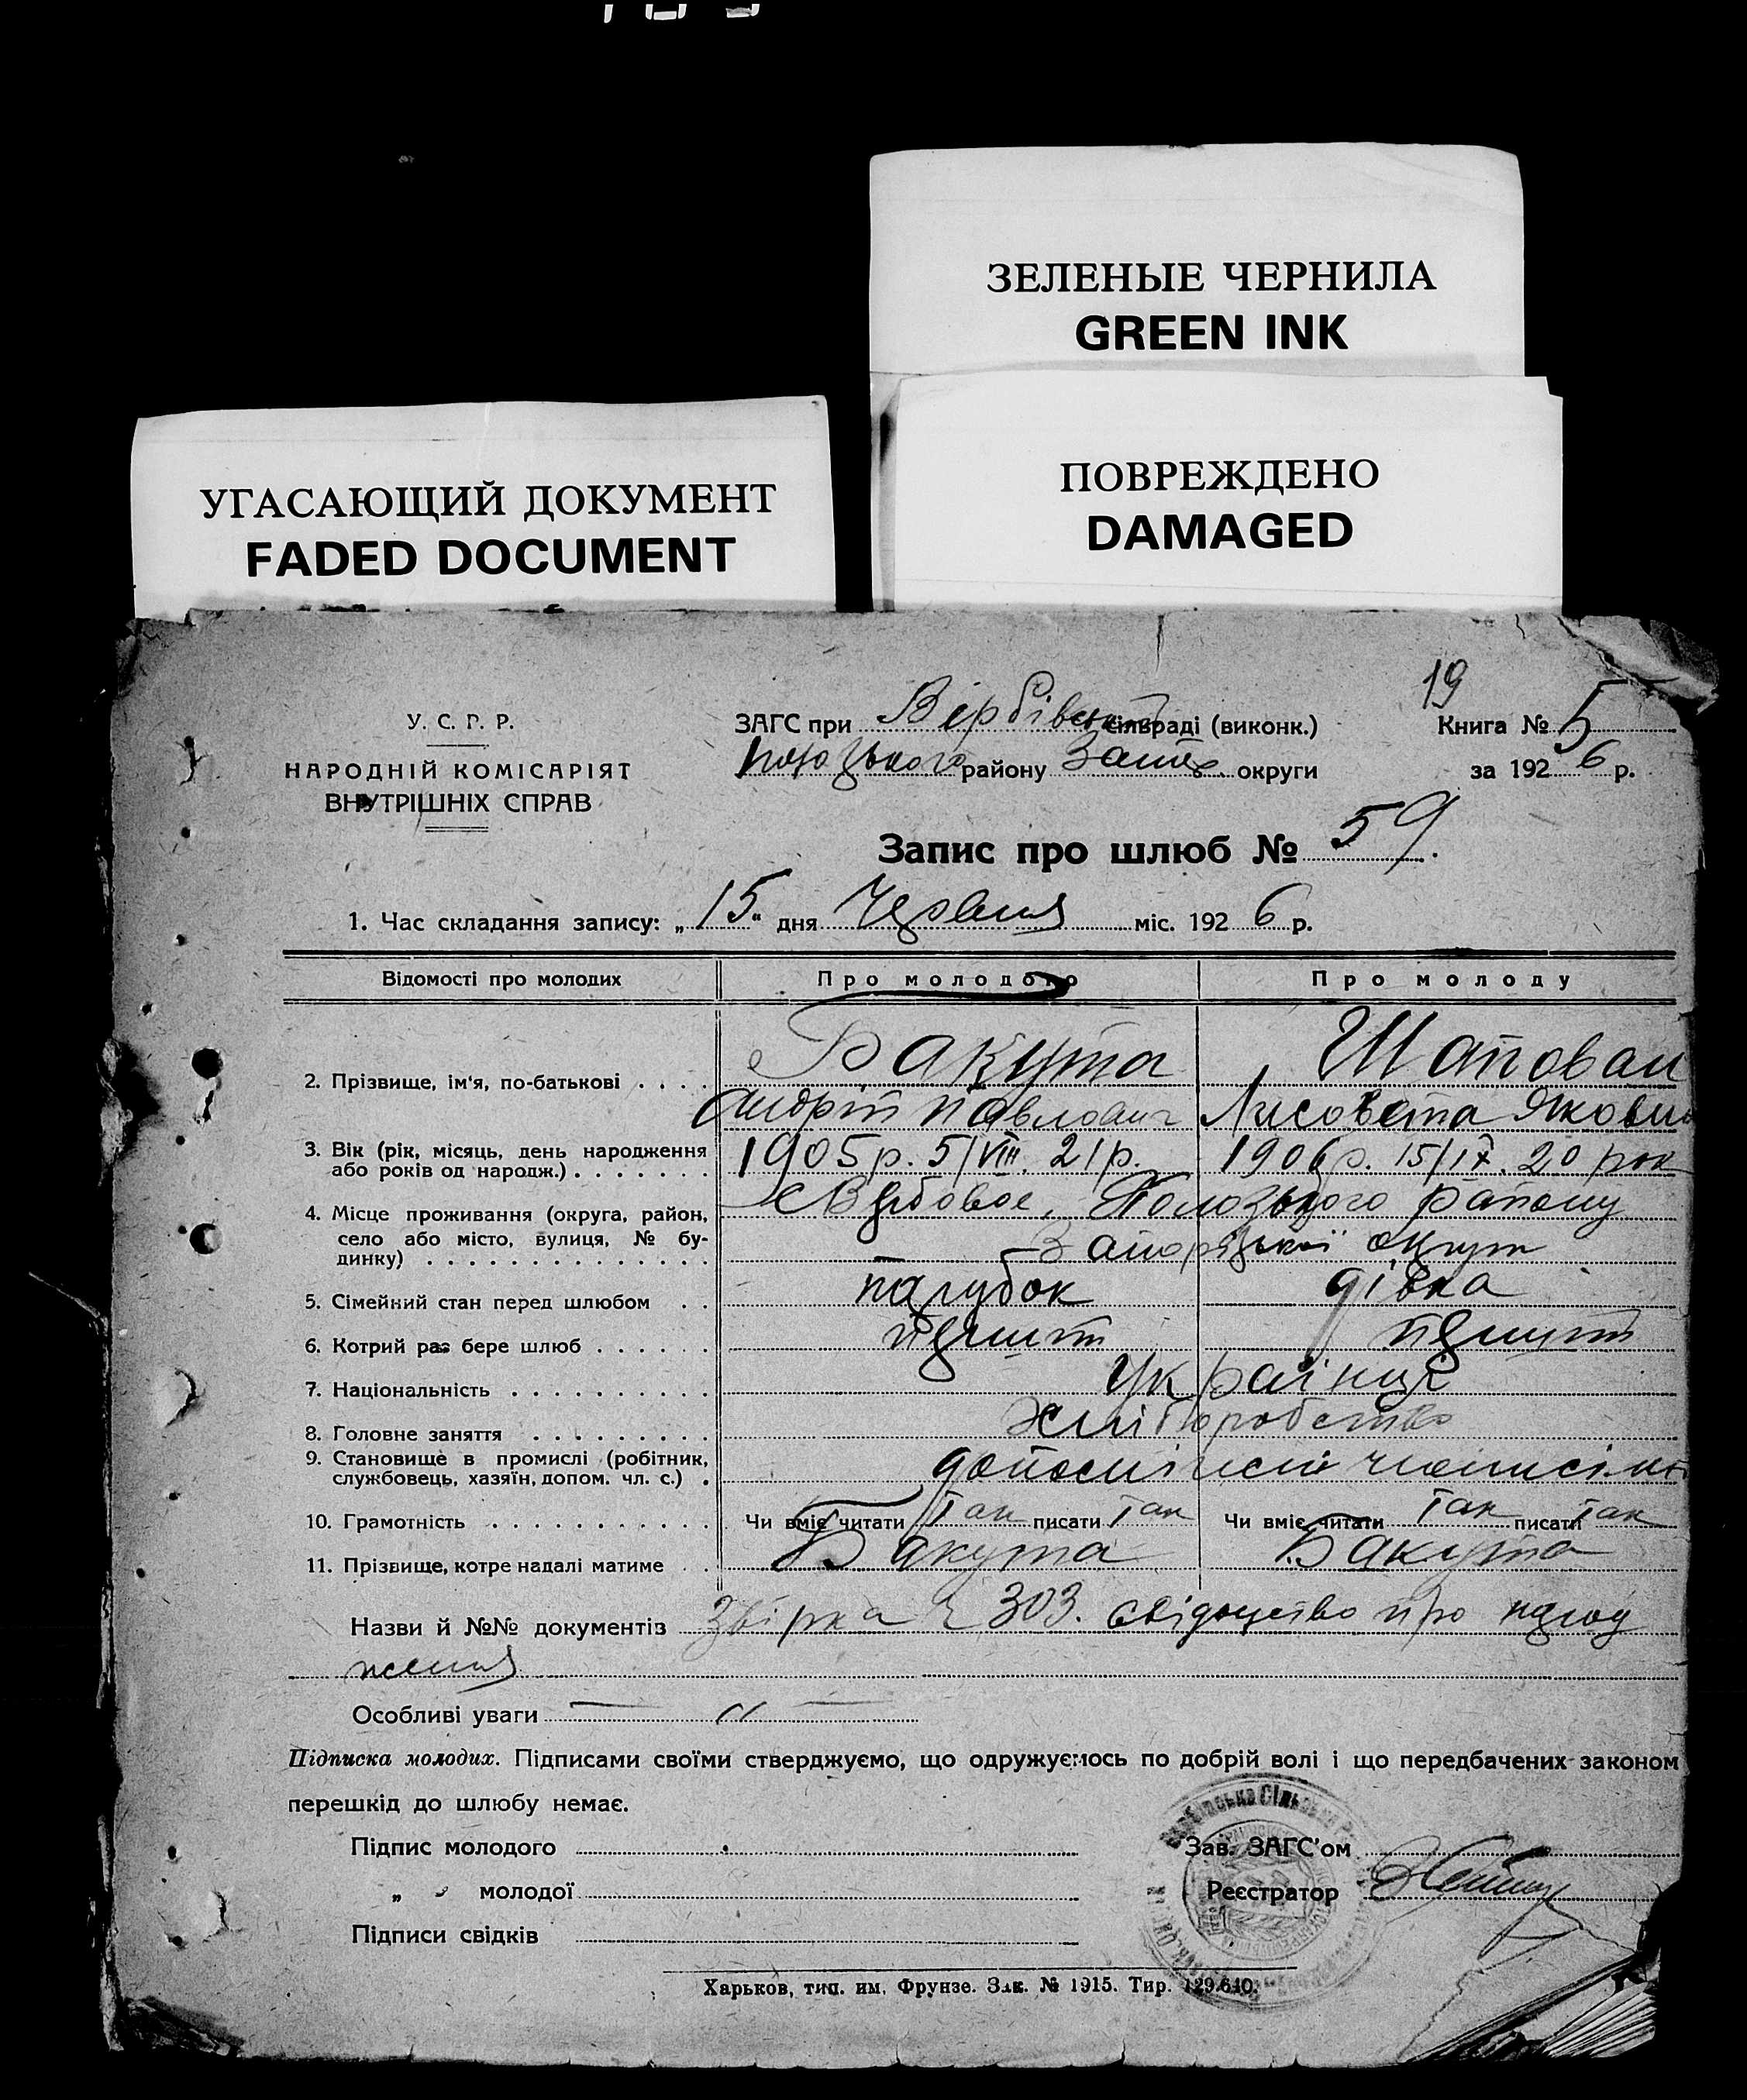 ЗЕЛЕНЫЕ ЧЕРНИЛА
GREEN INK
УГАСАЮЩИЙ ДОКУМЕНТ
FADED DOCUMENT
ПОВРЕЖДЕНО
DAMAGED
19
У. С. Р. Р.
НАРОДНІЙ КОМІСАРІЯТ
ВНУТРІШНІХ СПРАВ
ЗАГС при Вербівській сільраді (виконк.)
району Запор. округи
Книга № 5
за 1926 р.
Запис про шлюб № 59.
1. Час складання запису: „15“ дня Червня міс. 1926 р.
Відомості про молодих Про молодого Про молоду
2. Прізвище, ім'я, по-батькові . . . . Бакута Шаповал
Андрій Павлович Лисовета Яковл
3. Вік (рік, місяць, день народження 1905 р. 5/VIII. 21 р. 1906 р. 15/IX. 20 рок
або років од народж.) . . . . . . .
4. Місце проживання (округа, район, с Вербовое, Пологського району
село або місто, вулиця, № бу- Запорізької округи
динку) . . . . . . . . . . . . . .
5. Сімейний стан перед шлюбом . . парубок дівка
6. Котрий раз бере шлюб . . . . . . перший перший
7. Національність . . . . . . . . . . українці
8. Головне заняття . . . . . . . . . хліборобство
9. Становище в промислі (робітник,
службовець, хазяїн, допом. чл. с.) .
10. Грамотність . . . . . . . . . . . Чи вміє читати Так писати Так Чи вміє читати Так писати Так
11. Прізвище, котре надалі матиме . . Бакута Бакута
Назви й №№ документів Збірка 303. свідоцтво про народ
ження
Особливі уваги — „ —
Підписка молодих. Підписами своїми стверджуємо, що одружуємось по добрій волі і що передбачених законом
перешкід до шлюбу немає.
Підпис молодого
„ „ молодої
Підписи свідків
Зав. ЗАГС'ом
Реєстратор
Харьков, тип. им. Фрунзе. Зак. № 1915. Тир. 129.640.